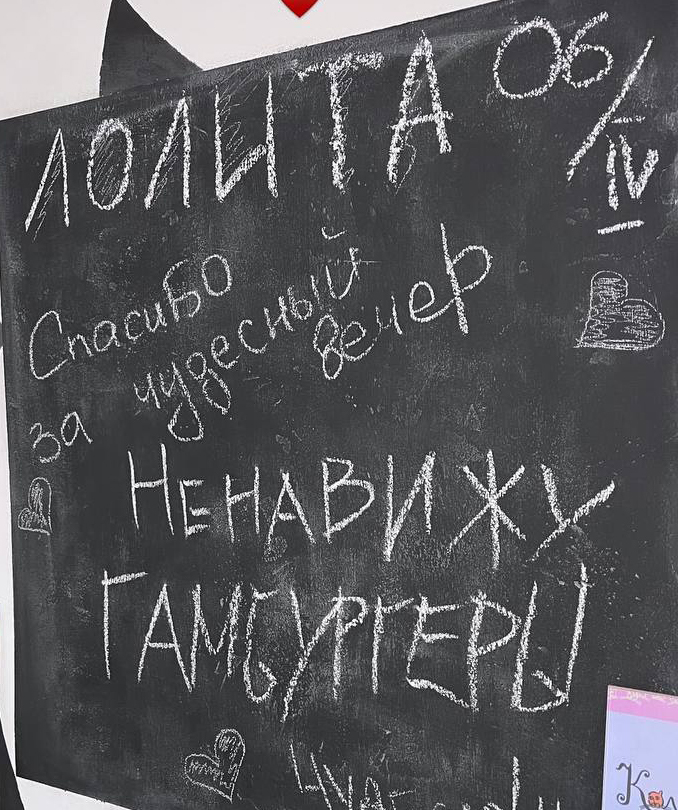 ЛОЛИТА 06/IV
Спасибо
за чудесный
вечер
НЕНАВИЖУ
ГАМБУРГЕРЫ